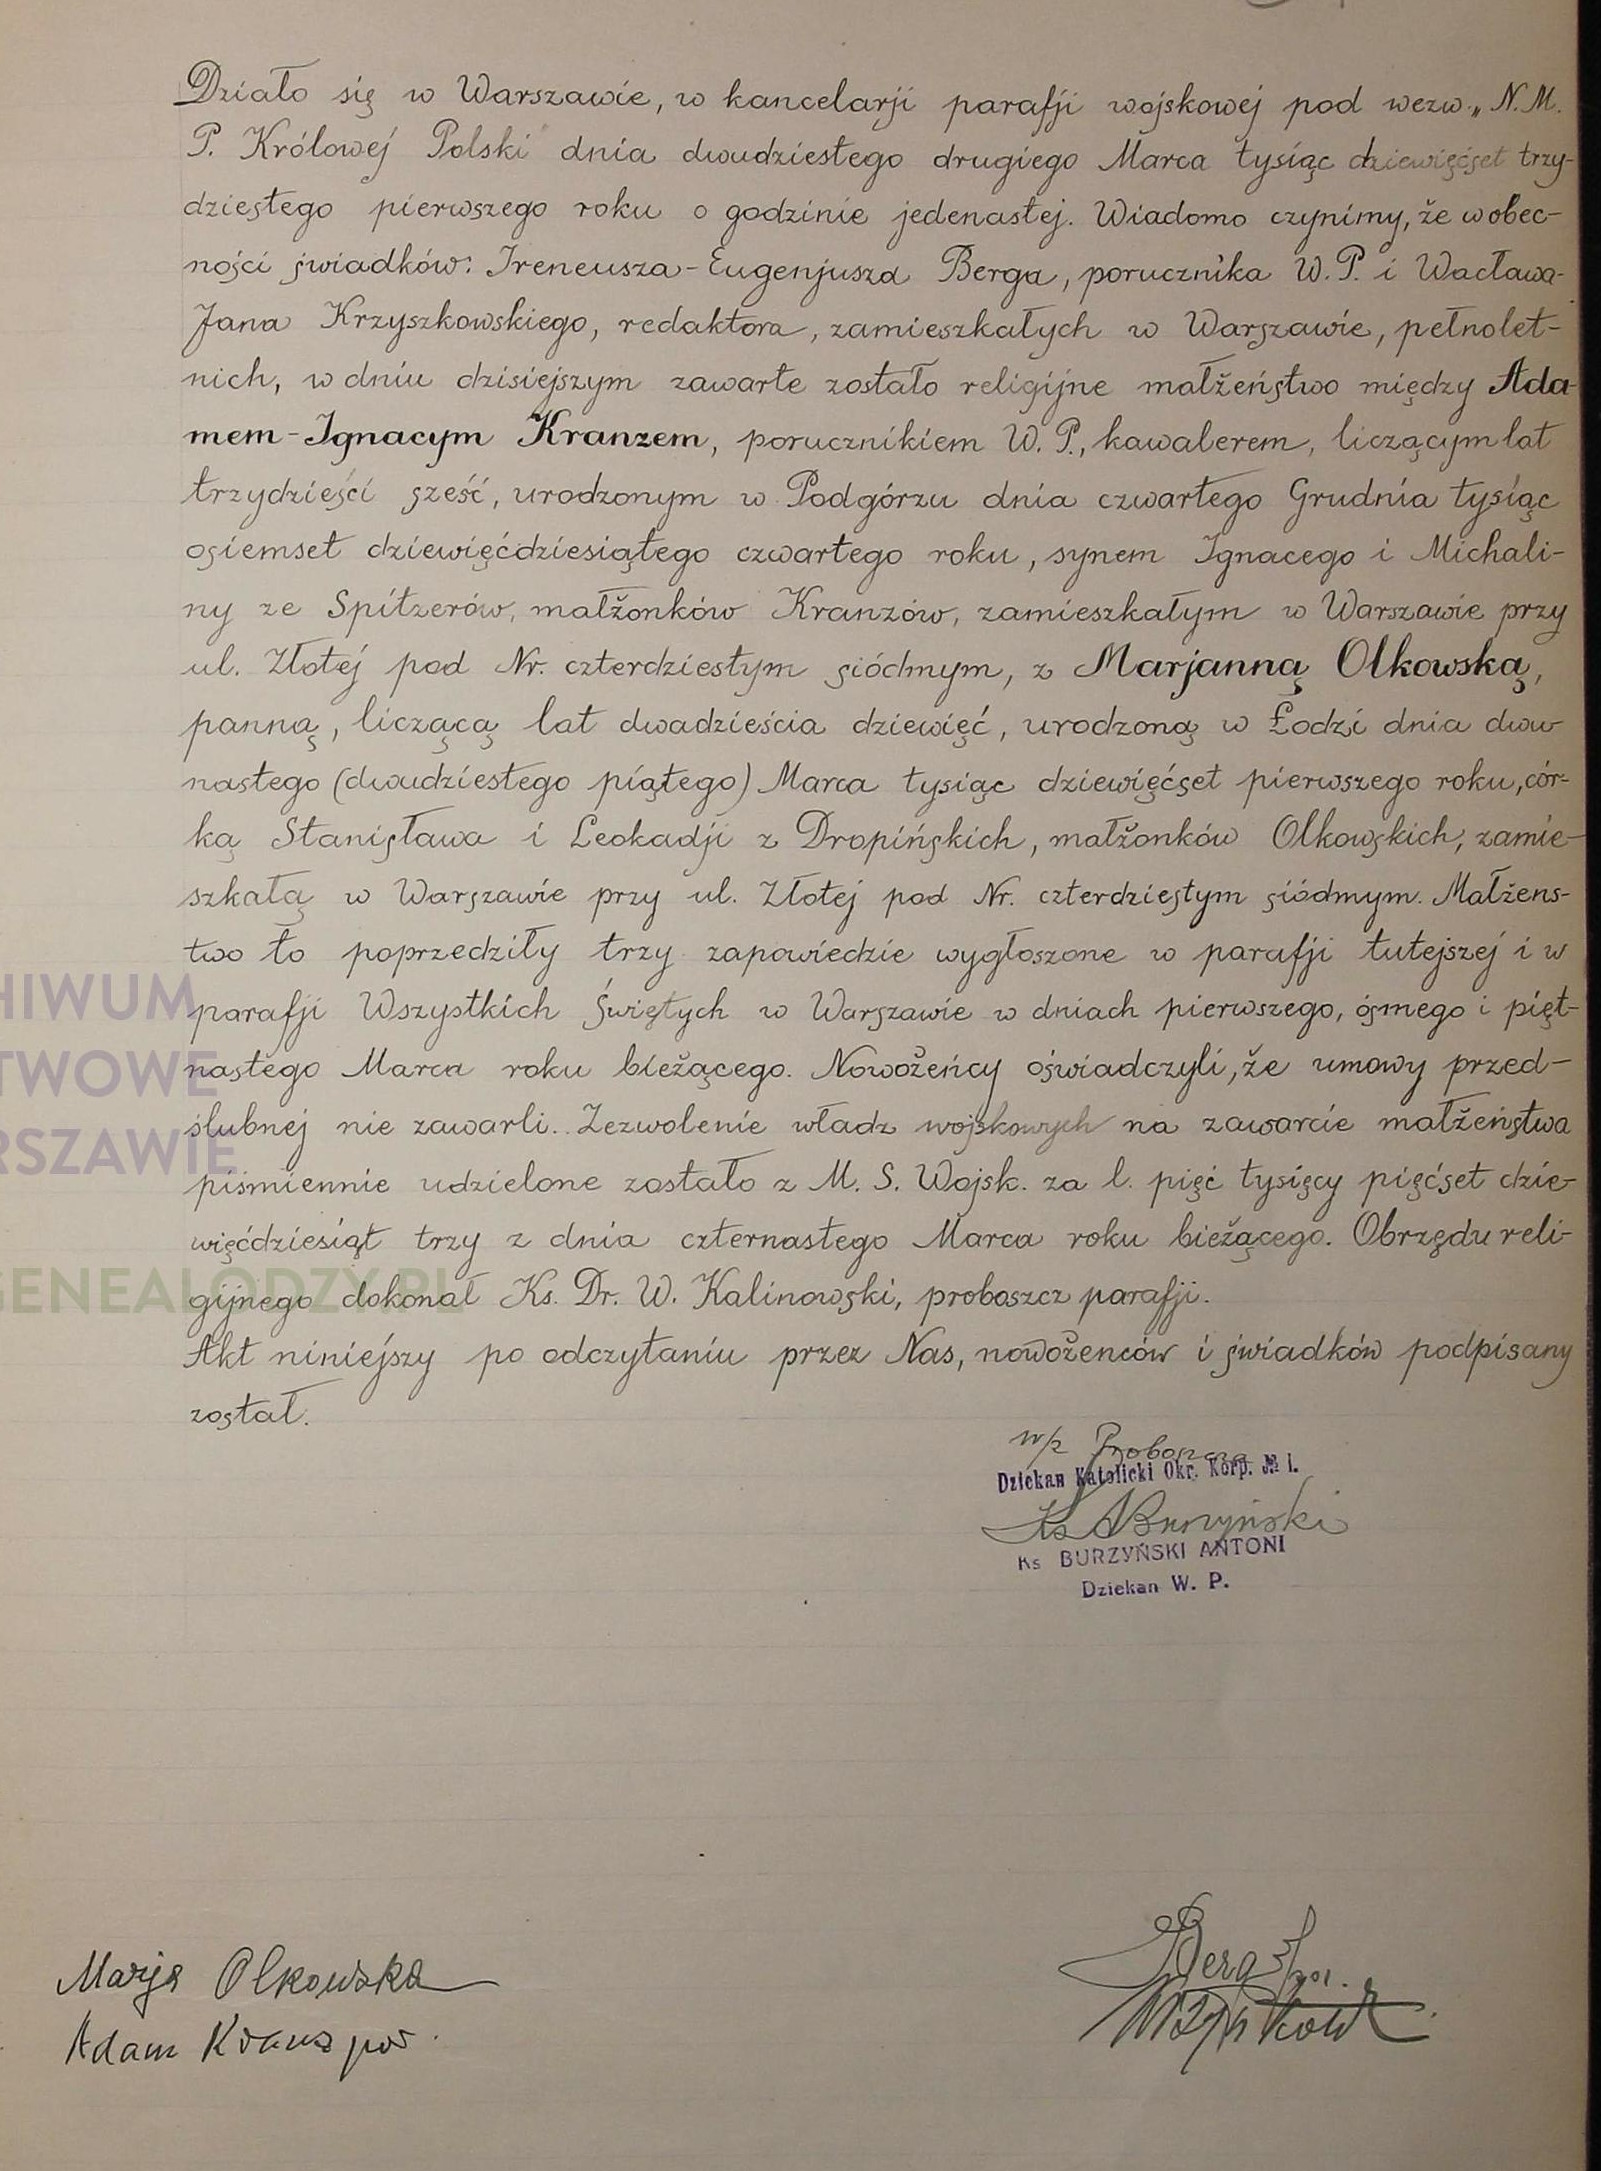 Działo się w Warszawie, w kancelarji parafji wojskowej pod wezw. „N.M.
P. Królowej Polski" dnia dwudziestego drugiego Marca tysiąc dziewięćset trzy-
dziestego pierwszego roku o godzinie jedenastej. Wiadomo czynimy, że w obec-
ności świadków: Ireneusza-Eugenjusza Berga, porucznika W.P. i Wacława-
Jana Krzyszkowskiego, redaktora, zamieszkałych w Warszawie, pełnolet-
nich, w dniu dzisiejszym zawarte zostało religijne małżeństwo między Ada-
mem-Ignacym Kranzem, porucznikiem W.P., kawalerem, liczącym lat
trzydzieści sześć, urodzonym w Podgórzu dnia czwartego Grudnia tysiąc
osiemset dziewięćdziesiątego czwartego roku, synem Ignacego i Michali-
ny ze Spitzerów, małżonków Kranzów, zamieszkałym w Warszawie przy
ul. Złotej pod Nr. czterdziestym siódmym, z Marjanną Olkowską,
panną, liczącą lat dwadzieścia dziewięć, urodzoną w Łodzi dnia dwu-
nastego (dwudziestego piątego) Marca tysiąc dziewięćset pierwszego roku, cór-
ką Stanisława i Leokadji z Dropińskich, małżonków Olkowskich, zamie-
szkałą w Warszawie przy ul. Złotej pod Nr. czterdziestym siódmym. Małżens-
two to poprzedziły trzy zapowiedzie wygłoszone w parafji tutejszej i w
parafji Wszystkich Świętych w Warszawie w dniach pierwszego, ósmego i pięt-
nastego Marca roku bieżącego. Nowożeńcy oświadczyli, że umowy przed-
ślubnej nie zawarli. Zezwolenie władz wojskowych na zawarcie małżeństwa
piśmiennie udzielone zostało z M. S. Wojsk. za l. pięć tysięcy pięćset dzie-
więćdziesiąt trzy z dnia czternastego Marca roku bieżącego. Obrzędu reli-
gijnego dokonał Ks. Dr. W. Kalinowski, proboszcz parafji.
Akt niniejszy po odczytaniu przez Nas, nowożenców i świadków podpisany
został.
w/z Proboszcza
Dziekan Katolicki Okr. Korp. № I.
Ks A Burzyński
Ks BURZYŃSKI ANTONI
Dziekan W. P.
HIWUM
TWOWE
RSZAWIE
GENEALODZY.PL
Marja Olkowska
Adam Kranz por.
Berg por.